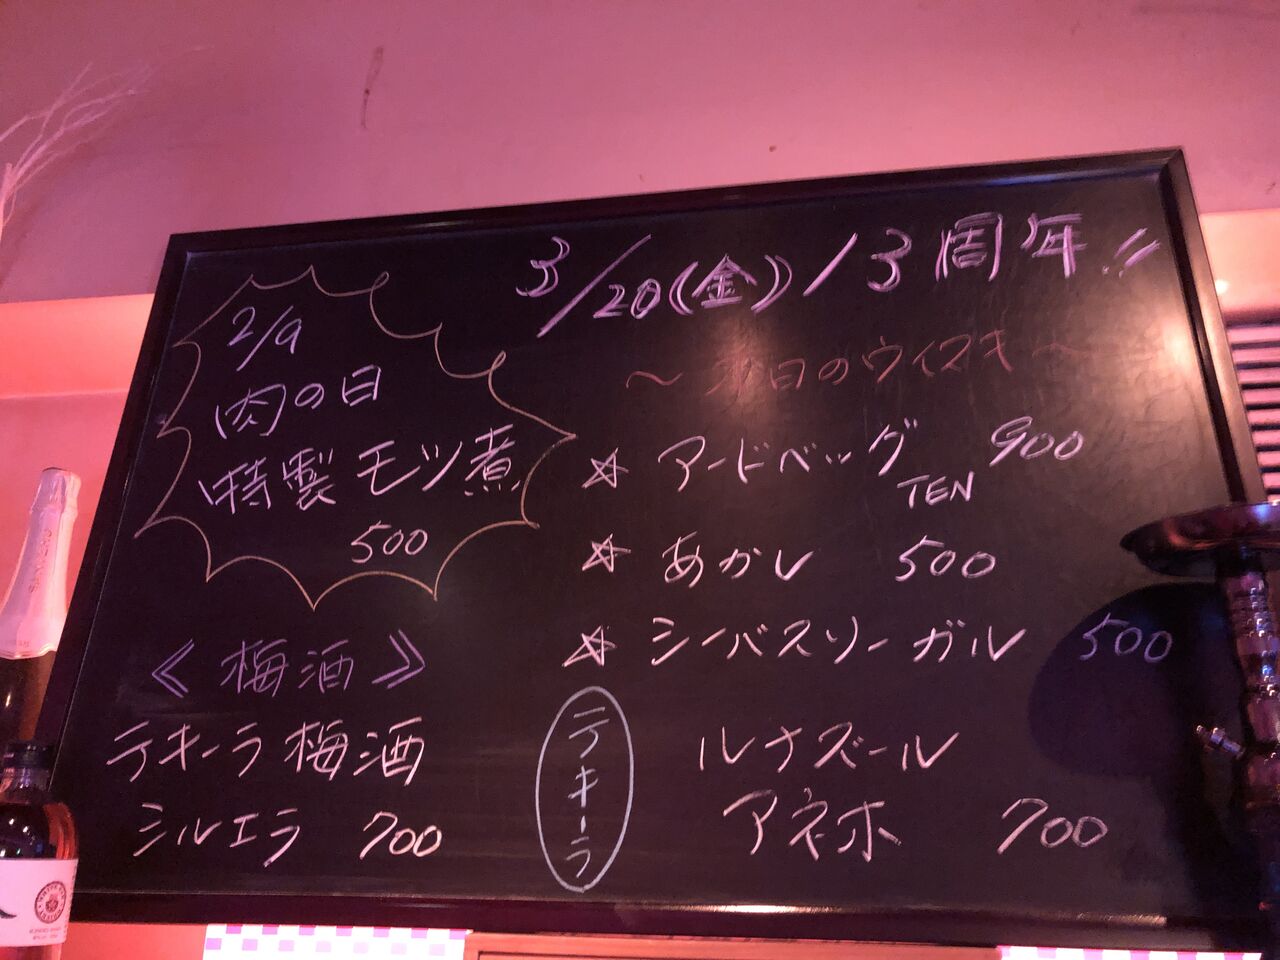 3/20(金)/3周年!!
2/9
肉の日
特製モツ煮
500
《梅酒》
テキーラ梅酒
シルエラ 700
～本日のウイスキー～
☆ アードベッグ TEN 900
☆ あかし 500
☆ シーバスリーガル 500
テキーラ
ルナズール
アネホ 700